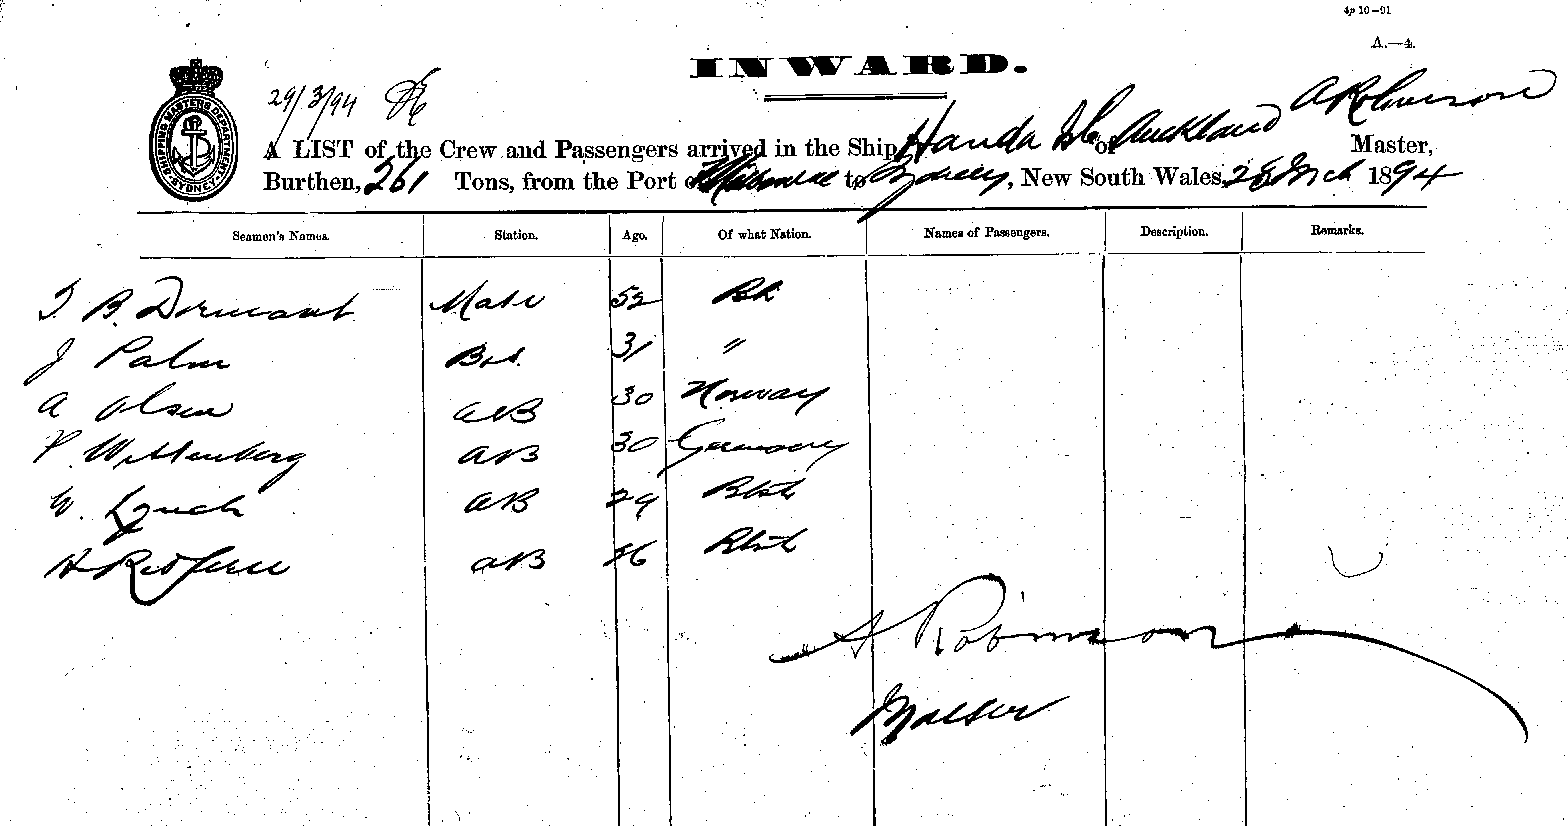 4p 10–91
A.—4.
INWARD.
29/3/94
A LIST of the Crew and Passengers arrived in the Ship Handa Isle of Auckland A Robinson Master,
Burthen, 261 Tons, from the Port of Melbourne to Sydney, New South Wales, 28 Mch 1894
SHIPPING MASTERS DEPARTMENT SYDNEY
Seamen's Names. Station. Age. Of what Nation. Names of Passengers. Description. Remarks.
B. Dormant Mate 52 Bh
J Palm Bos. 31 "
A Olsen AB 30 Norway
P. Wittenberg AB 30 Germany
W. Lynch AB 29 Btsh
H Redfern AB Btsh
A Robinson
Master